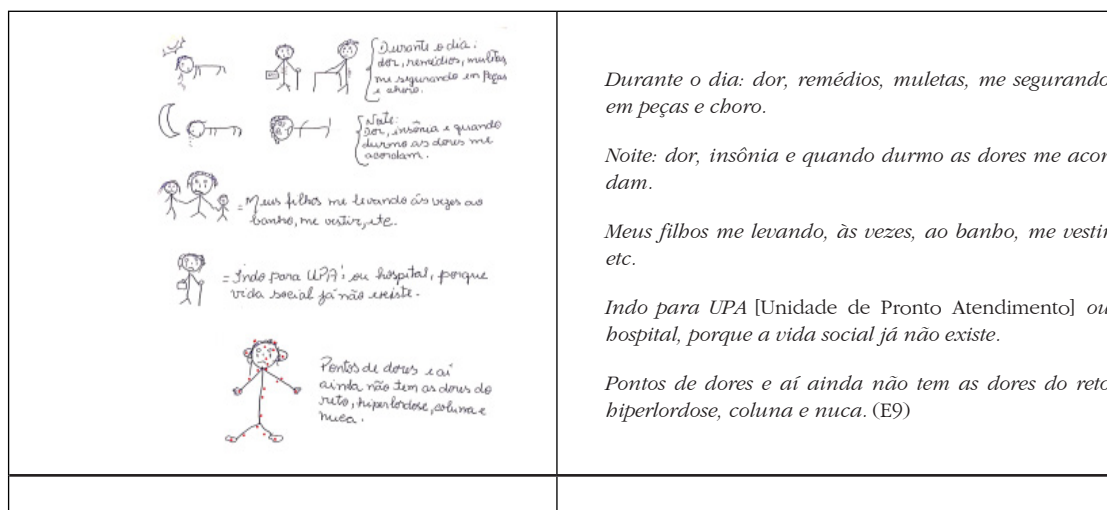 Durante o dia:
dor, remédios, muletas,
me segurando em peças
e choro.
Noite:
Dor, insônia e quando
durmo as dores me
acordam.
= Meus filhos me levando às vezes ao
banho, me vestir, etc.
= Indo para UPA; ou hospital, porque
vida social já não existe.
Pontos de dores e aí
ainda não tem as dores do
reto, hiperlordose, coluna e
nuca.
Durante o dia: dor, remédios, muletas, me segurando
em peças e choro.
Noite: dor, insônia e quando durmo as dores me acor
dam.
Meus filhos me levando, às vezes, ao banho, me vestir
etc.
Indo para UPA [Unidade de Pronto Atendimento] ou
hospital, porque a vida social já não existe.
Pontos de dores e aí ainda não tem as dores do reto
hiperlordose, coluna e nuca. (E9)